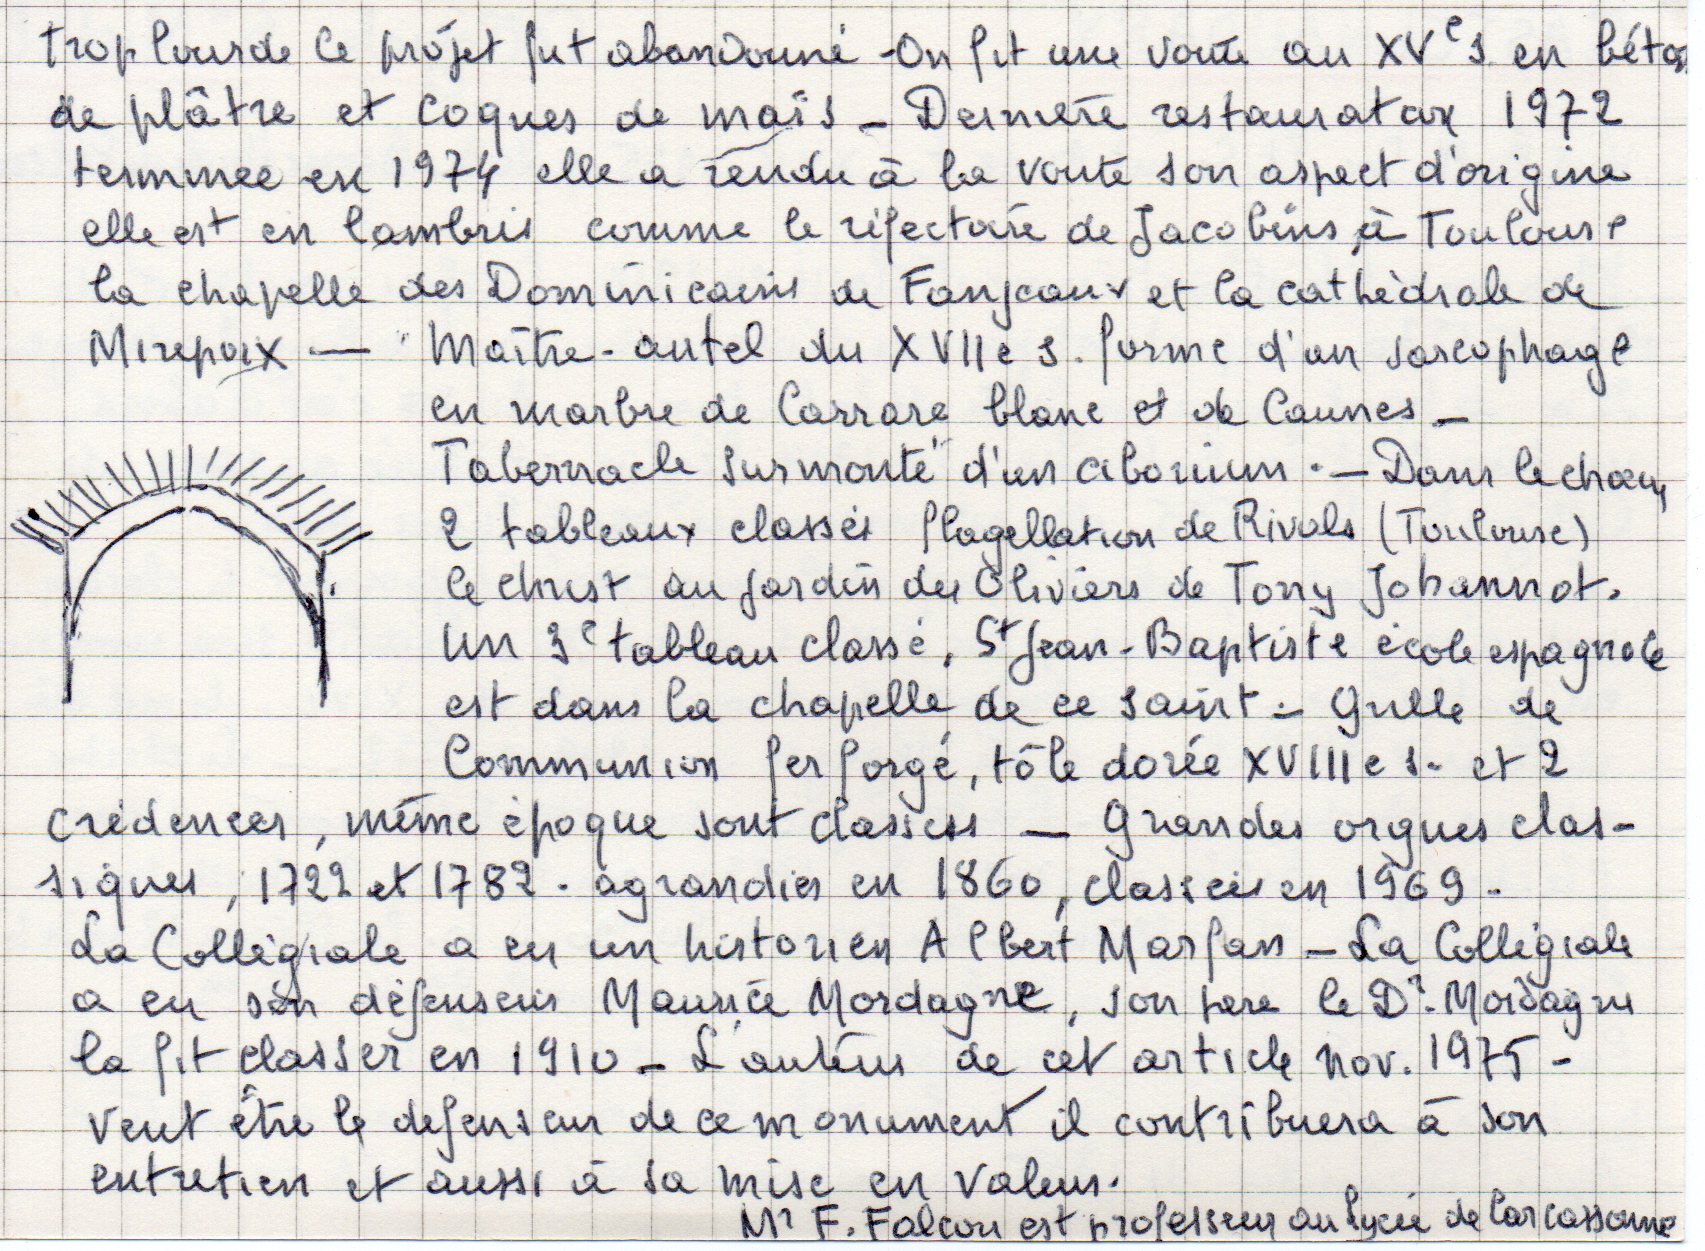 trop lourde le projet fut abandonné - On fit une voute au XVe s. en béton
de plâtre et coques de maïs _ Dernière restauration 1972
terminée en 1974 elle a rendu à la voute son aspect d'origine
elle est en lambris comme le réfectoire de Jacobins à Toulouse
la chapelle des Dominicains de Fanjeaux et la cathédrale de
Mirepoix — Maître-autel du XVIIe s. forme d'un sarcophage
en marbre de Carrare blanc et de Caunes _
Tabernacle surmonté d'un ciborium . — Dans le chœur
2 tableaux classés flagellation de Rivals (Toulouse)
le Christ au jardin des Oliviers de Tony Johannot.
un 3e tableau classé, St Jean-Baptiste école espagnole
est dans la chapelle de ce saint - Grille de
Communion fer forgé, tôle dorée XVIIIe s. et 2
crédences, même époque sont classés — Grandes orgues clas-
siques, 1722 et 1782 . agrandies en 1860, classées en 1969 -
La Collégiale a eu un historien Albert Marfan - La Collégiale
a eu son défenseur Maurice Mordagne, son père le Dr. Mordagne
la fit classer en 1910 - L'auteur de cet article nov. 1975 -
veut être le défenseur de ce monument il contribuera à son
entretien et aussi à sa mise en valeur.
Mr F. Falcou est professeur au lycée de Carcassonne